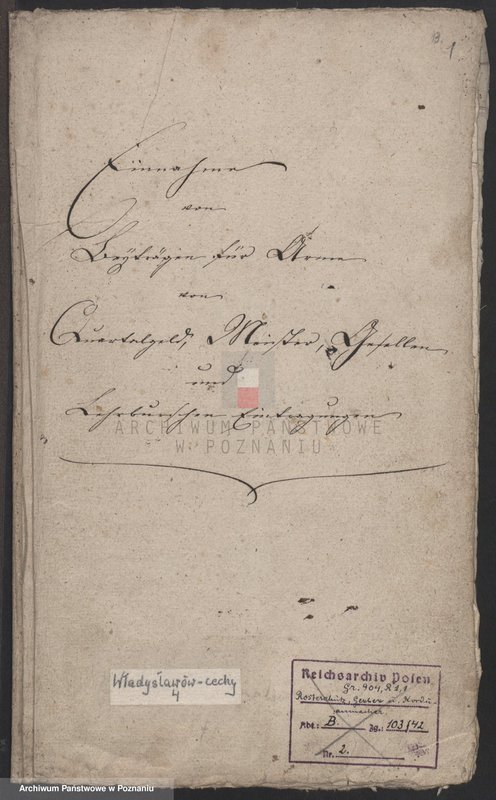 B. 1
Einnahme
von
Beyträgen für Arme
von
Quartalgeld, Meister, Gesellen
und
Lehrburschen Eintragungen
ARCHIWUM PAŃSTWOWE
W POZNANIU
Władysławów-cechy
4
Reichsarchiv Posen
Gr. 904, R 1,1
Rosterschütz, Gerber u.
Abt.: B. Zg.: 103/42
Nr. 2.
Archiwum Państwowe w Poznaniu